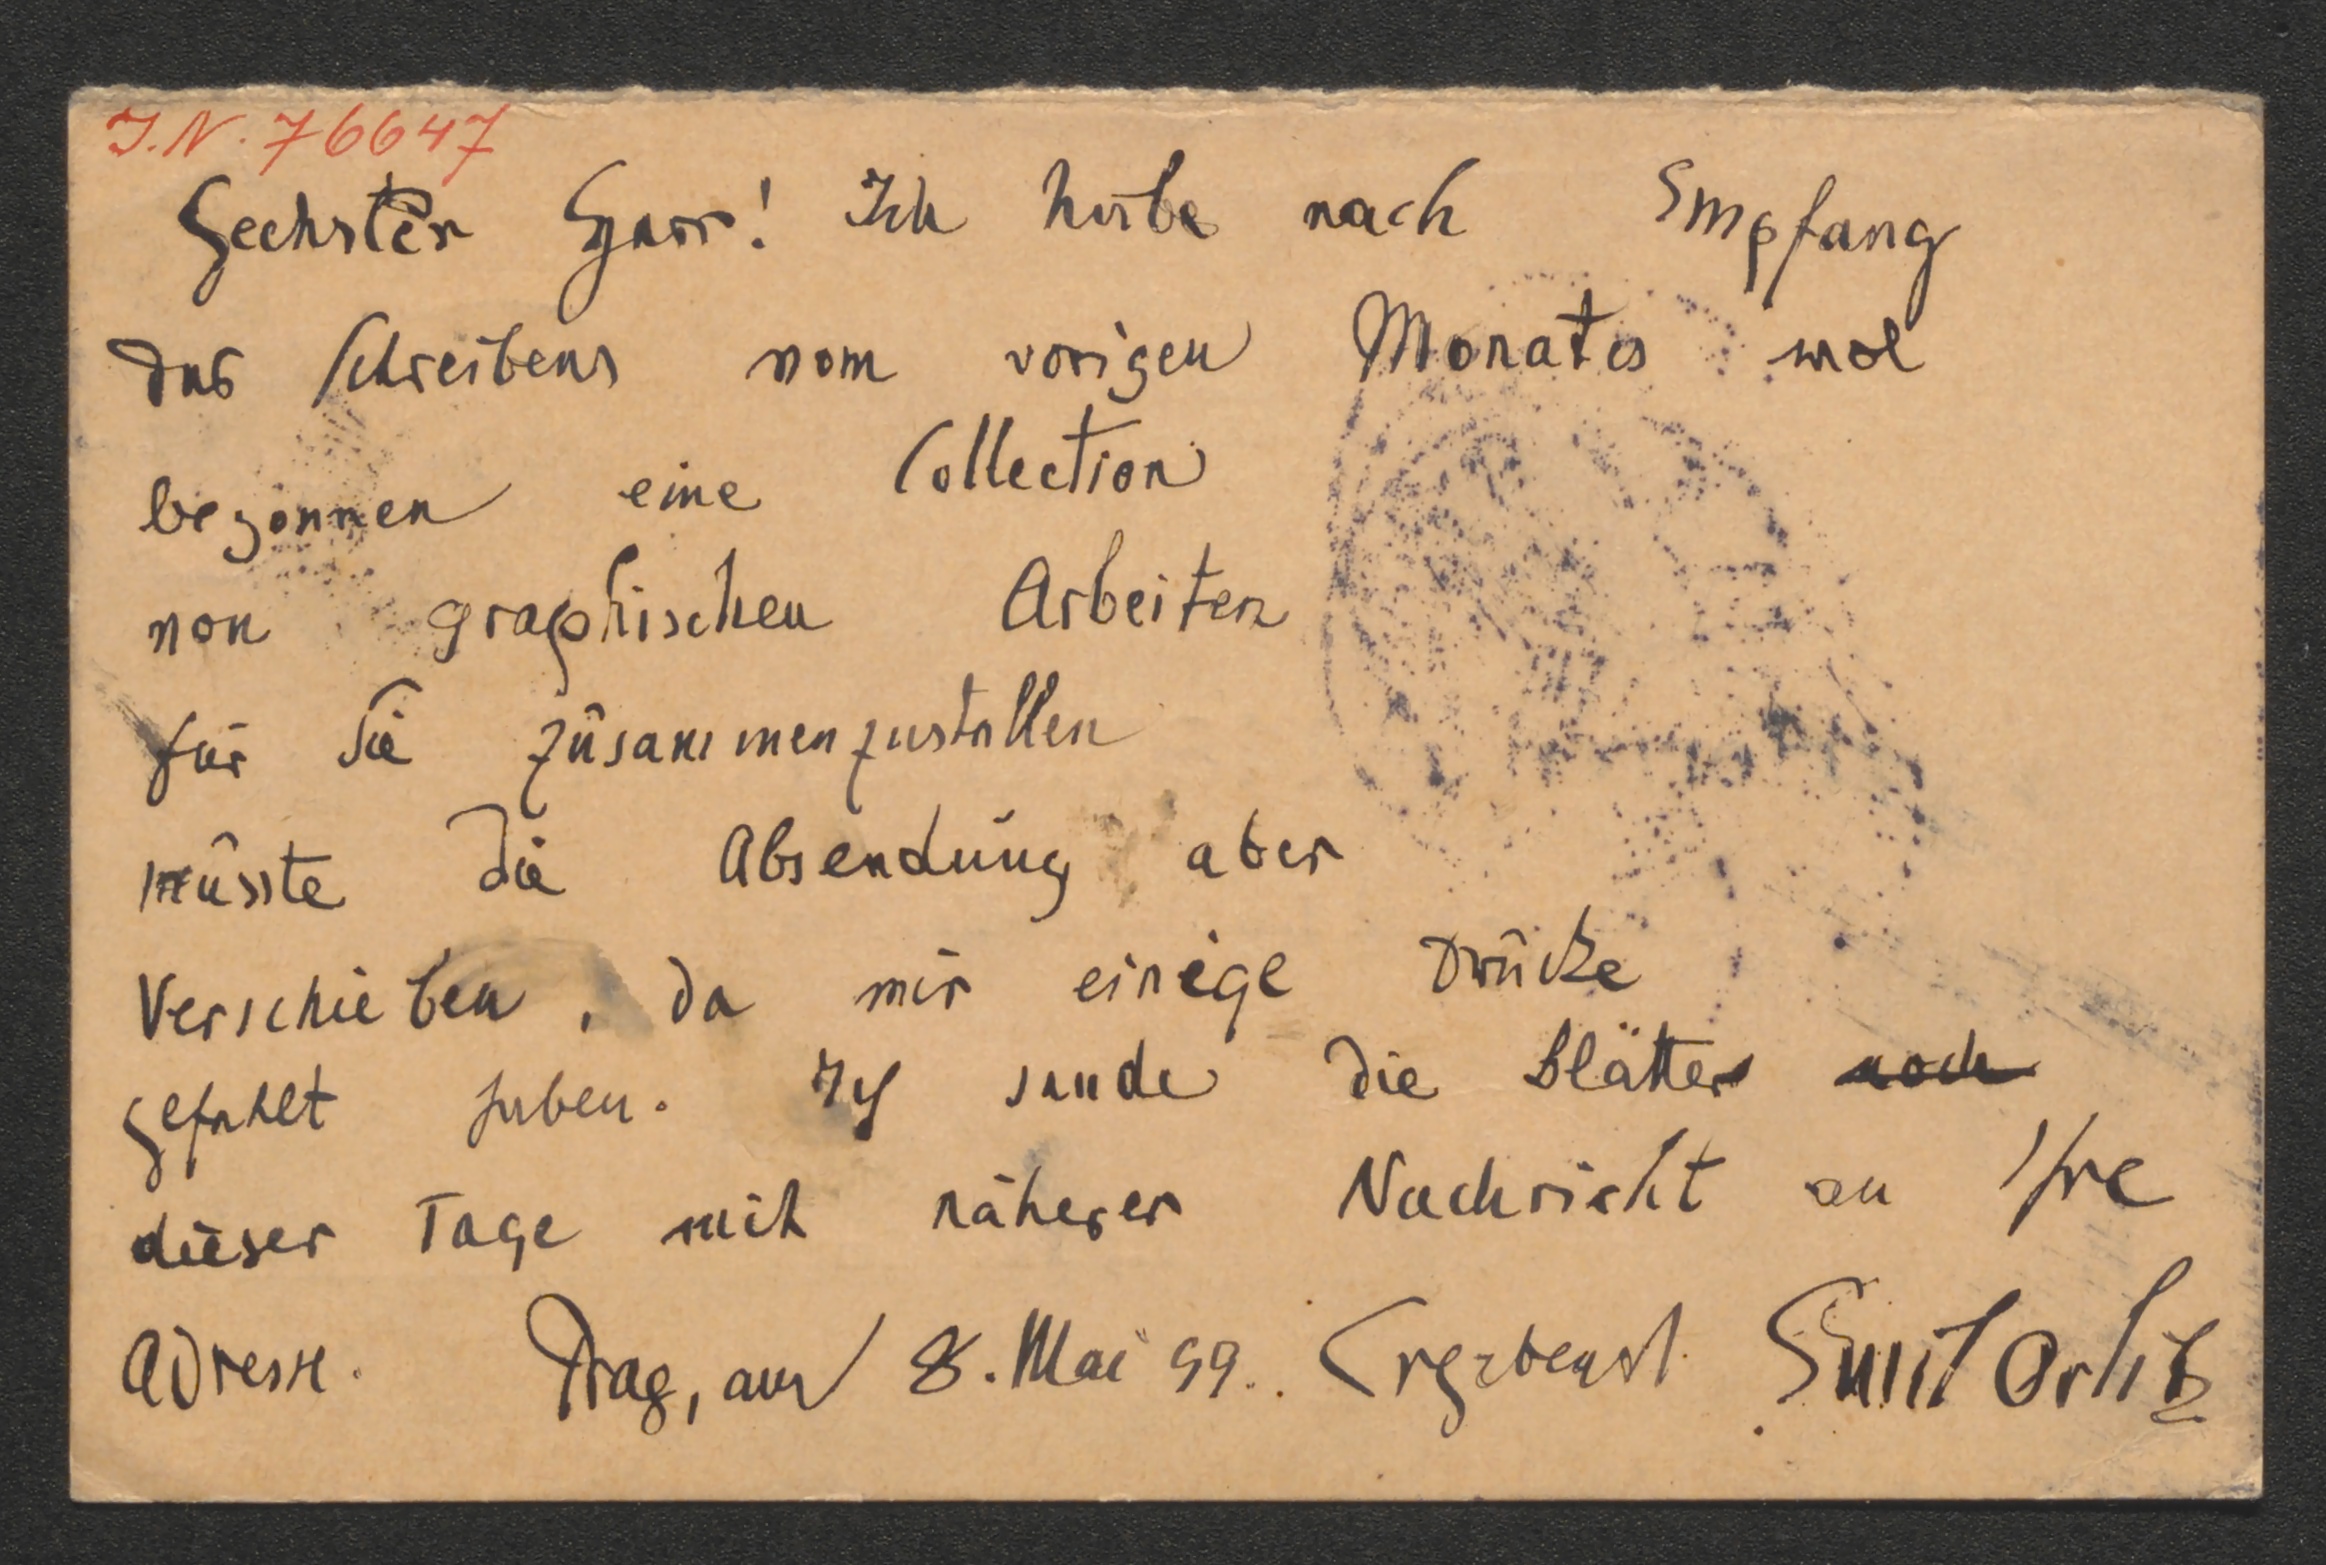 I.N. 76647
Geehrter Herr! Ich habe nach Empfang
des Schreibens vom vorigen Monates wol
begonnen eine Collection
von graphischen Arbeiten
für Sie zusammenzustellen
musste die Absendung aber
verschieben, da mir einige Drucke
gefehlt haben. Ich sende die Blätter noch
dieser Tage mit näherer Nachricht an Ihre
Adresse. Prag, am 8. Mai 99. Ergebenst Emil Orlik